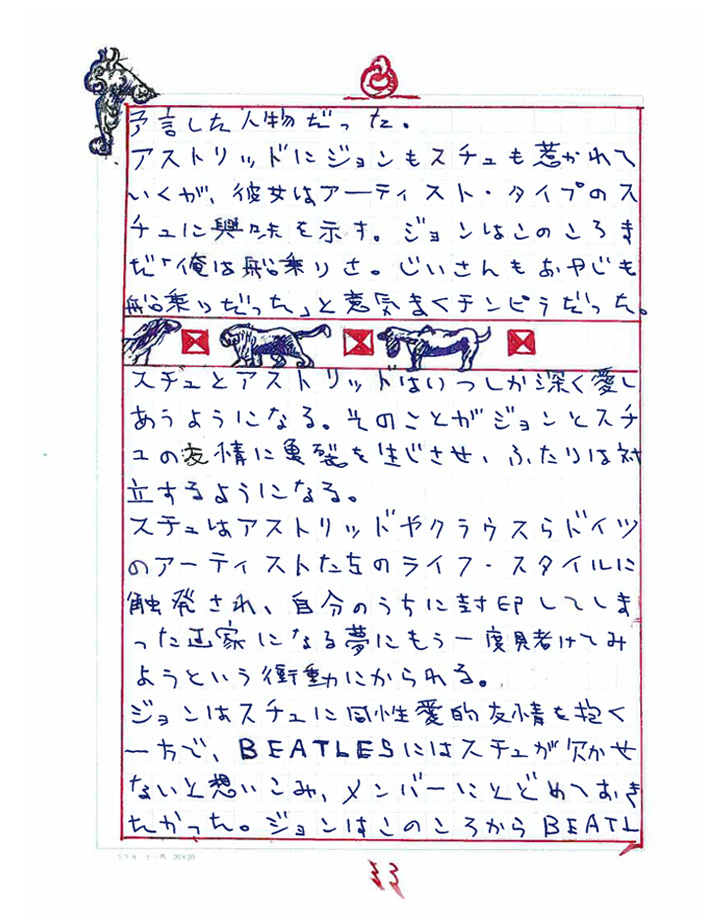 予言した人物だった。
アストリッドにジョンもスチュも惹かれて
いくが、彼女はアーティスト・タイプのス
チュに興味を示す。ジョンはこのころま
だ「俺は船乗りさ。じいさんもおやじも
船乗りだった」と意気まくチンピラだった。
スチュとアストリッドはいつしか深く愛し
あうようになる。そのことがジョンとスチ
ュの友情に亀裂を生じさせ、ふたりは対
立するようになる。
スチュはアストリッドやクラウスらドイツ
のアーティストたちのライフ・スタイルに
触発され、自分のうちに封印してしま
った画家になる夢にもう一度賭けてみ
ようという衝動にかられる。
ジョンはスチュに同性愛的友情を抱く
一方で、BEATLESにはスチュが欠かせ
ないと想いこみ、メンバーにとどめておき
たかった。ジョンはこのころからBEATL